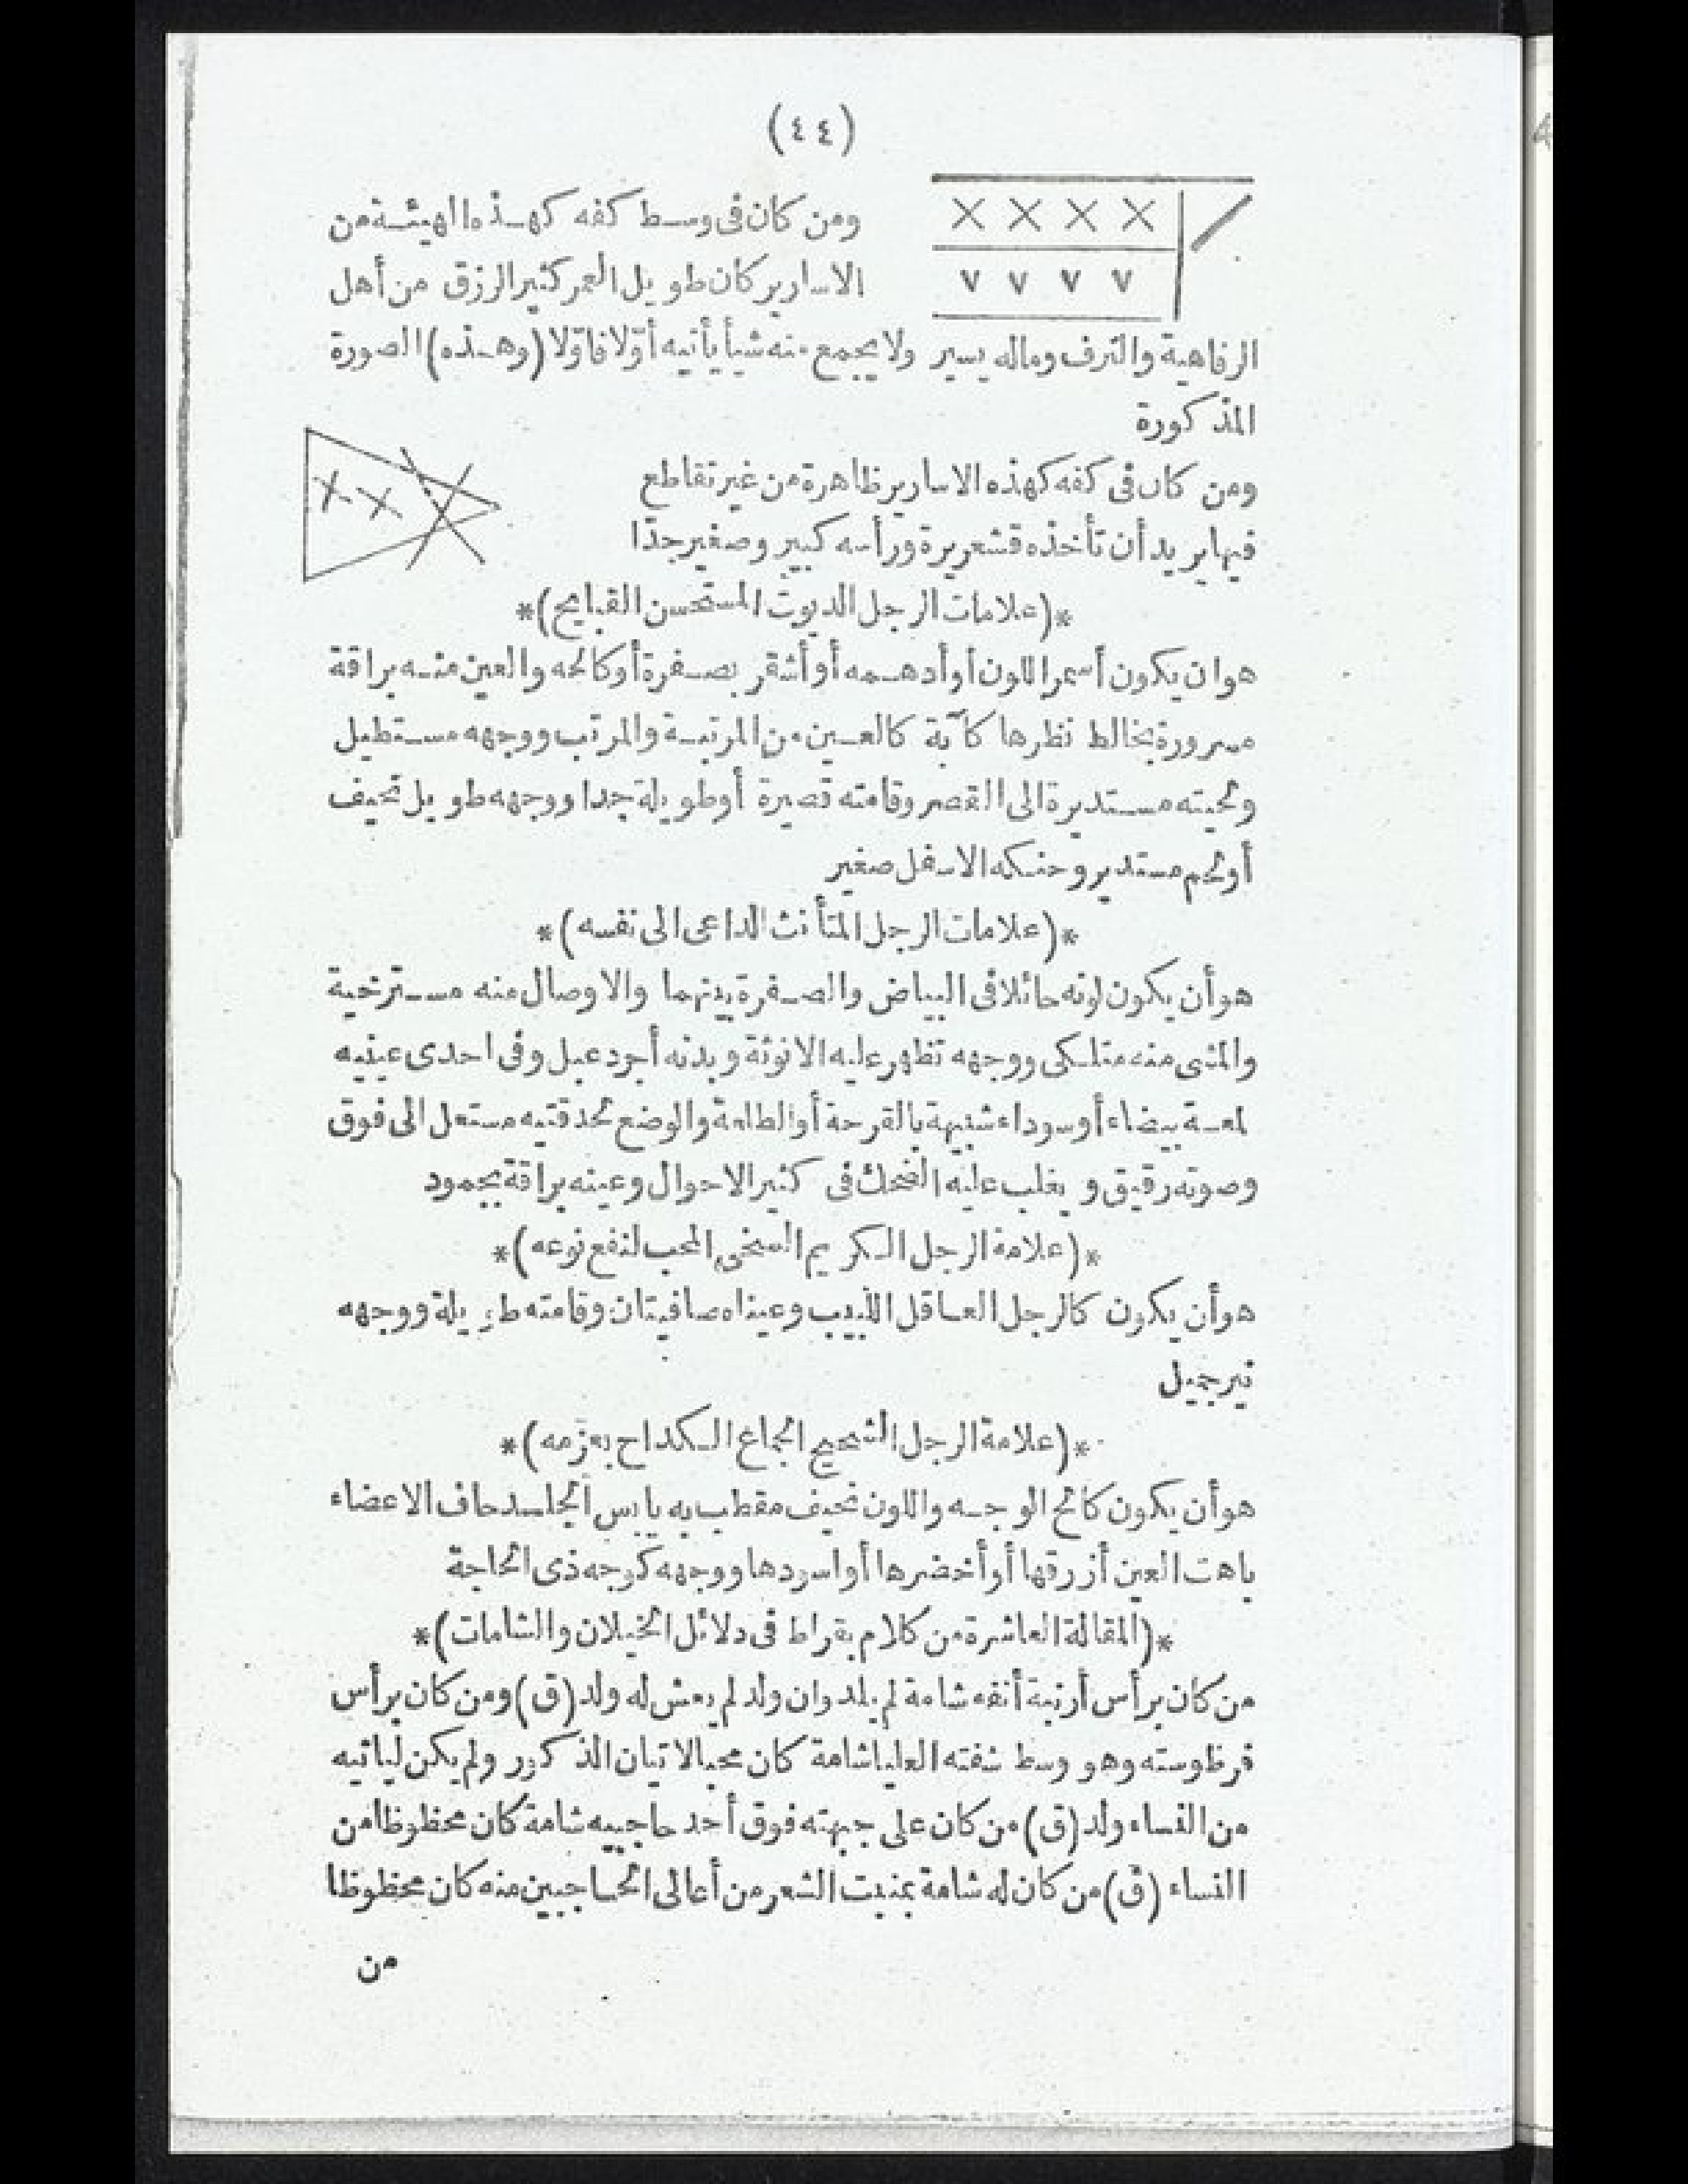 (٤٤)
ومن كان فى وسط كفه كهذه الهيئة من
الاسارير كان طويل العمر كثير الرزق من أهل
الرفاهية والترف وماله يسير ولا يجمع منه شيأ يأتيه أوّلا فاوّلا (وهذه) الصورة
المذكورة
ومن كان فى كفه كهذه الاسارير ظاهرة من غير تقاطع
فيها يريد أن تأخذه قشعريرة ورأسه كبير وصغير جدّا
*(علامات الرجل الديوث المستحسن القبايح)*
هو ان يكون أسمر اللون أو أدهمه أو أشقر بصفرة أو كالحه والعين منه براقة
مسرورة يخالط نظرها كآبة كالعين من المرتبة والمرتب ووجهه مستطيل
ولحيته مستديرة الى القصر وقامته قصيرة أو طويلة جدا ووجهه طويل نحيف
أو لحم مستدير وحنكه الاسفل صغير
*(علامات الرجل المتأنث الداعى الى نفسه)*
هو أن يكون لونه حائلا فى البياض والصفرة بينهما والاوصال منه مسترخية
والمشى منه متلكى ووجهه تظهر عليه الانوثة وبدنه أجرد عبل وفى احدى عينيه
لمعة بيضاء أو سوداء شبيهة بالقرحة أو الطلعة والوضع لحدقتيه مستعل الى فوق
وصوته رقيق ويغلب عليه الضحك فى كثير الاحوال وعينه براقة بجمود
*(علامة الرجل الكريم السخى المحب لنفع نوعه)*
هو أن يكون كالرجل العاقل اللبيب وعيناه صافيتان وقامته طويلة ووجهه
نير جميل
*(علامة الرجل الشحيح الجماع الكداح بعزمه)*
هو أن يكون كالح الوجه واللون نحيف مقطب به يابس الجلد جاف الاعضاء
باهت العين أزرقها أو أخضرها أو اسودها ووجهه كوجه ذى الحاجة
*(المقالة العاشرة من كلام بقراط فى دلائل الخيلان والشامات)*
من كان برأس أرنبة أنفه شامة لم يلد وان ولد لم يعش له ولد (ق) ومن كان برأس
فرظوسته وهو وسط شفته العليا شامة كان محبا لاتيان الذكور ولم يكن لياتيه
من النساء ولد (ق) من كان على جبهته فوق أحد حاجبيه شامة كان محظوظا من
النساء (ق) من كان له شامة بمنبت الشعر من أعالى الحاجبين منه كان محظوظا
من